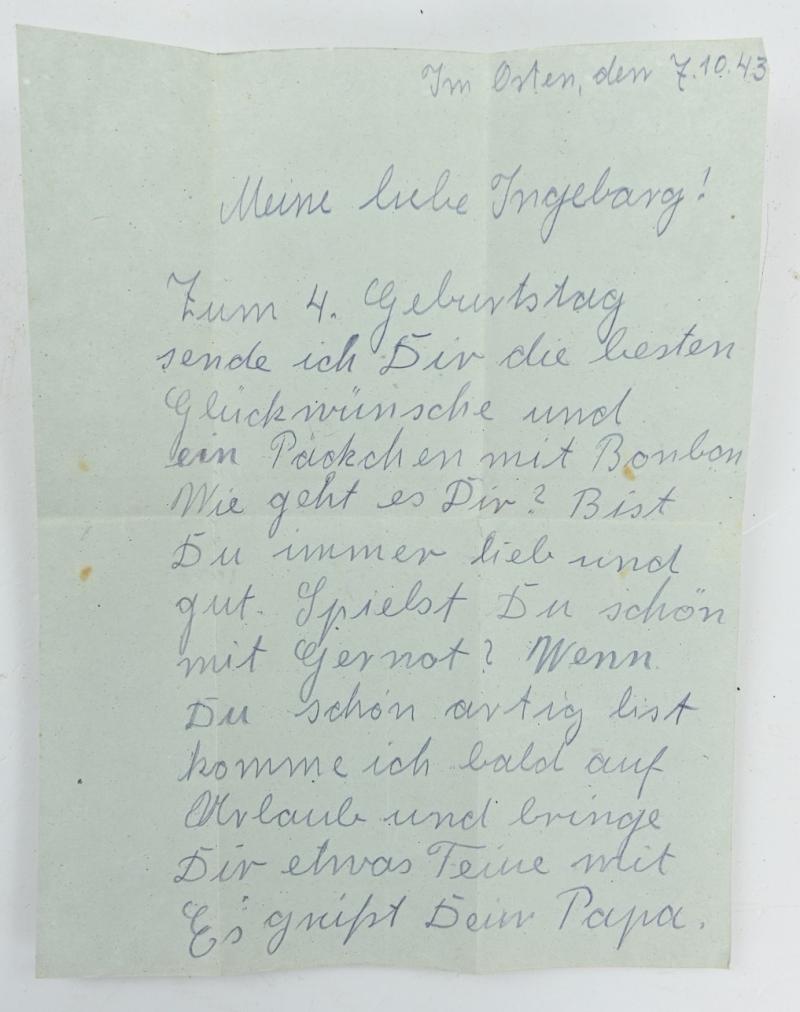 Im Osten, den 7.10.43
Meine liebe Ingeborg!
Zum 4. Geburtstag
sende ich Dir die besten
Glückwünsche und
ein Päckchen mit Bonbon
Wie geht es Dir? Bist
Du immer lieb und
gut. Spielst Du schön
mit Gernot? Wenn
Du schön artig bist
komme ich bald auf
Urlaub und bringe
Dir etwas Feine mit
Es grüßt Dein Papa.